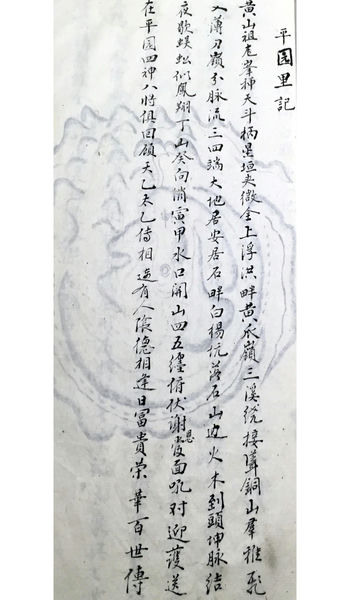 平园里記
黄山祖老峯挿天斗柄星垣夹微金上浮洪畔黄爪嶺三溪繞接葦銅山羣雅亂
又薄刀嶺分脉流三四端大地居安居石畔白楊坑落石山边火木到頭坤脉结
夜歇蜈蚣似鳳翔丁山癸向消寅甲水口開山四五纏俯伏謝恩後面吼对迎護送
在平园四神八將俱回顧天乙太乙侍相連有人陰德相逢日冨貴荣華百世傳